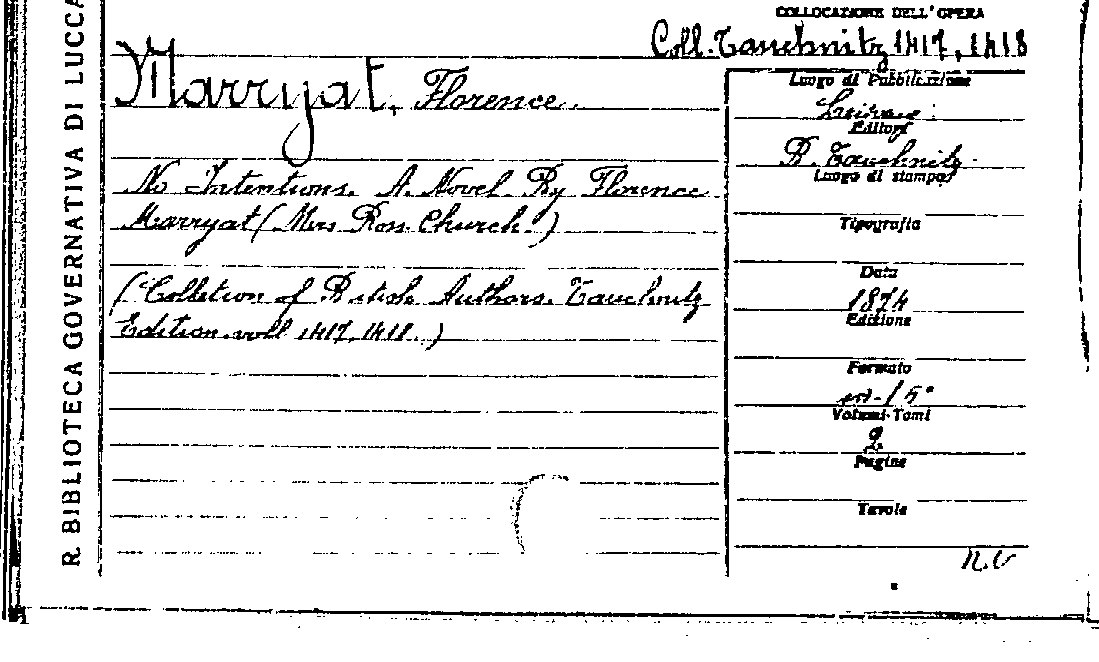 R. BIBLIOTECA GOVERNATIVA DI LUCCA
COLLOCAZIONE DELL'OPERA
Coll. Tauchnitz 1417, 1418
Marryat, Florence.
No Intentions. A Novel. By Florence
Marryat (Mrs Ross Church.)
(Colletion of British Authors. Tauchnitz
Edition. voll 1417, 1418.)
Luogo di Pubblicazione
Editori
B. Tauchnitz
Luogo di stampa
Tipografia
Data
1874
Edizione
Formato
in-15°
Volumi-Tomi
2
Pagine
Tavole